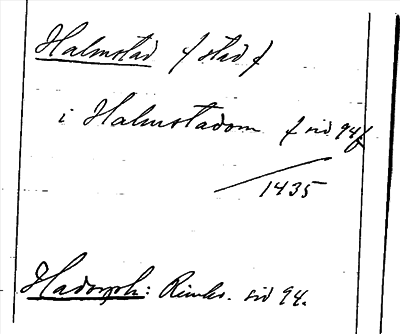 Halmstad / stad /
i Halmstadom / sid 94 /
/ 1435
Hadorph: Rimkr. sid 94.